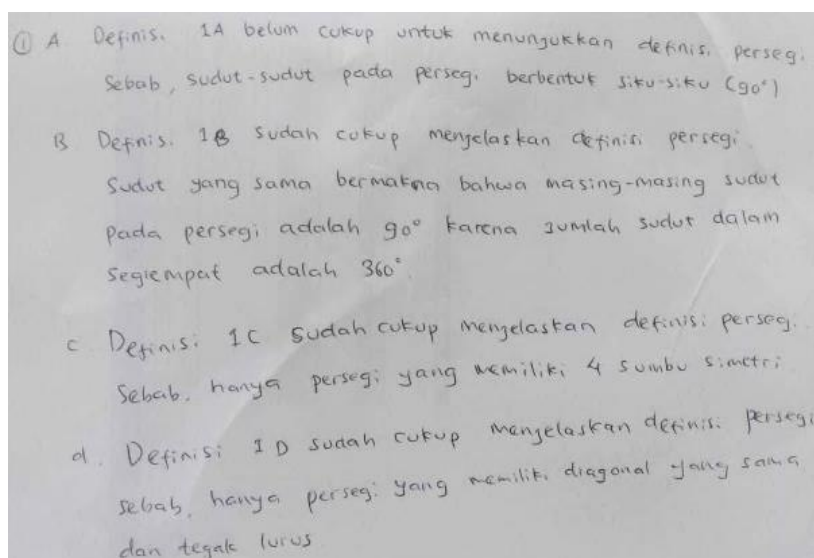 ① A Definisi 1A belum cukup untuk menunjukkan definisi persegi.
Sebab, sudut-sudut pada persegi berbentuk siku-siku (90°)
B Definisi 1B sudah cukup menjelaskan definisi persegi.
Sudut yang sama bermakna bahwa masing-masing sudut
pada persegi adalah 90° karena jumlah sudut dalam
segiempat adalah 360°.
c Definisi 1C sudah cukup menjelaskan definisi persegi.
Sebab, hanya persegi yang memiliki 4 sumbu simetri
d. Definisi 1D sudah cukup menjelaskan definisi persegi
sebab, hanya persegi yang memiliki diagonal yang sama
dan tegak lurus